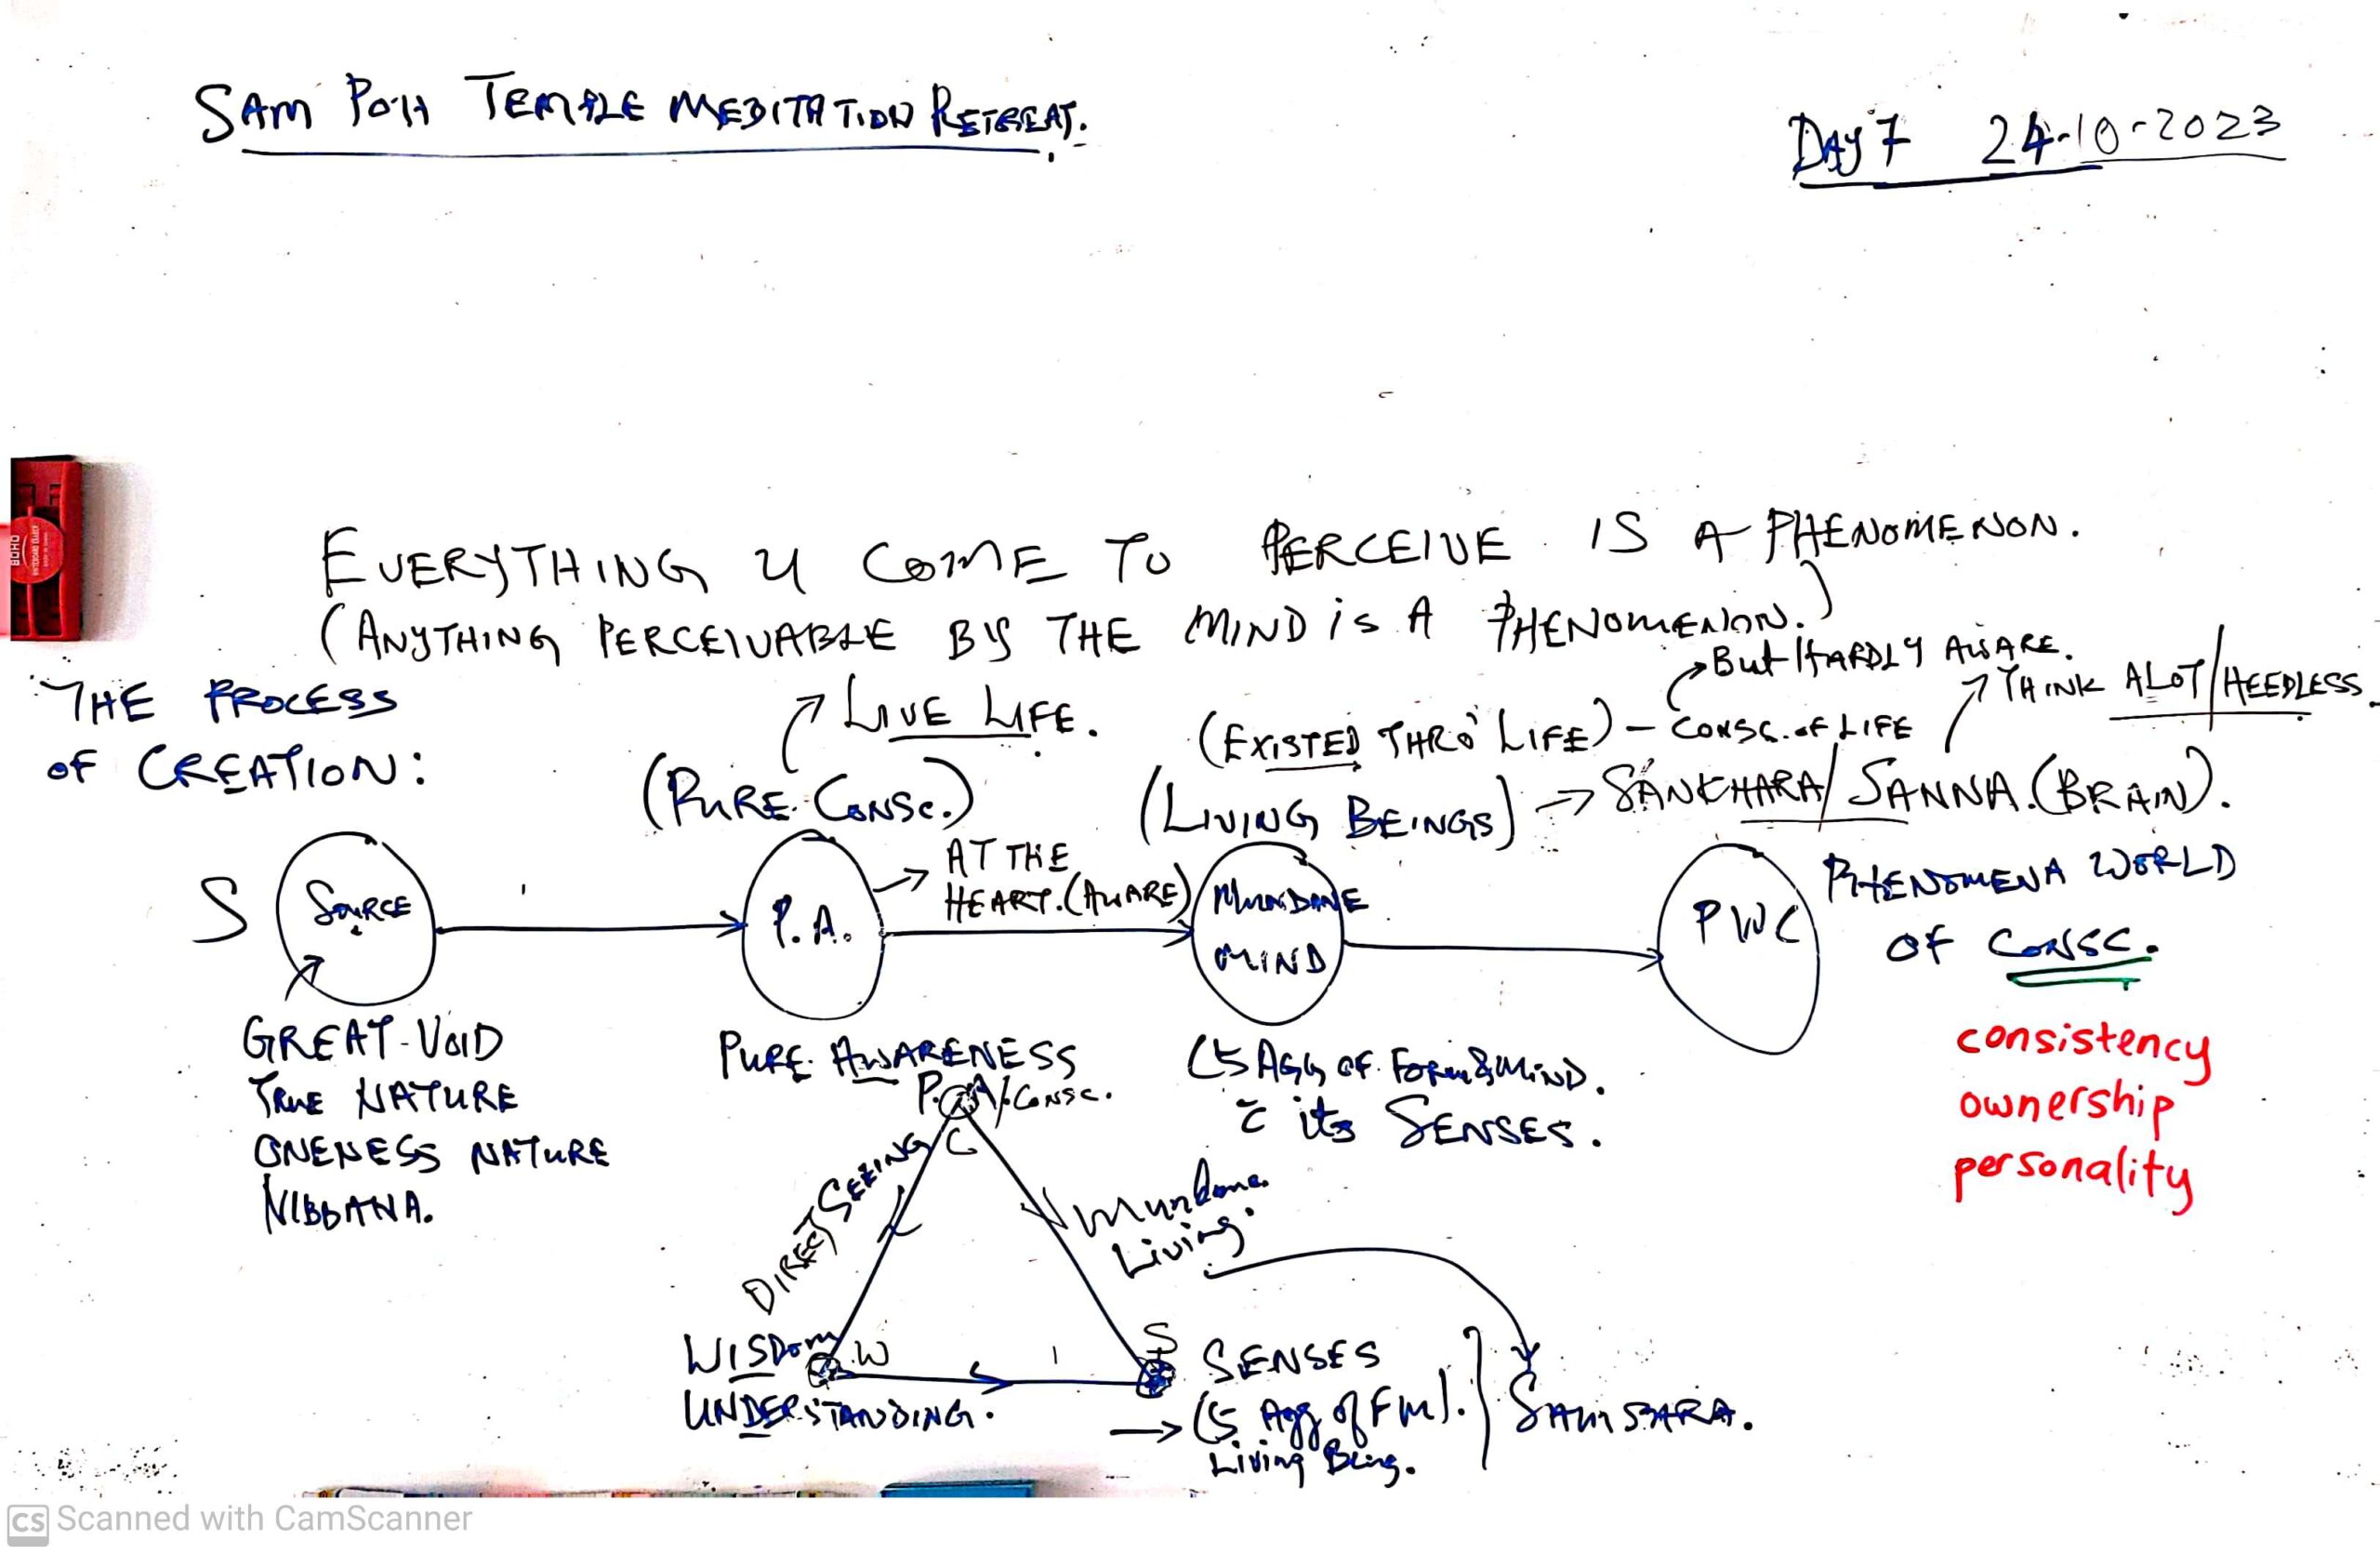 SAM POH TEMPLE MEDITATION RETREAT.
DAY 7 24-10-2023
EVERYTHING U COME TO PERCEIVE IS A PHENOMENON.
(ANYTHING PERCEIVABLE BY THE MIND is A PHENOMENON.)
But HARDLY AWARE.
THINK ALOT/HEEDLESS
THE PROCESS
OF CREATION:
LIVE LIFE.
(EXISTED THRO' LIFE) - CONSC. OF LIFE
(PURE CONSC.)
(LIVING BEINGS) → SANKHARA/SANNA. (BRAIN).
AT THE
HEART. (AWARE)
S
SOURCE
P.A.
MUNDANE
MIND
PWC
PHENOMENA WORLD
OF CONSC.
GREAT-VOID
TRUE NATURE
ONENESS NATURE
NIBBANA.
PURE AWARENESS
P.A/CONSC.
C
(5 AGG OF FORM & MIND.
c̄ its SENSES.
consistency
ownership
personality
DIRECT SEEING
Mundane
Living.
WISDOM W
UNDERSTANDING.
S
SENSES
→ (5 Agg of FM).
Living Being.
SAMSARA.
BOHO
CS Scanned with CamScanner